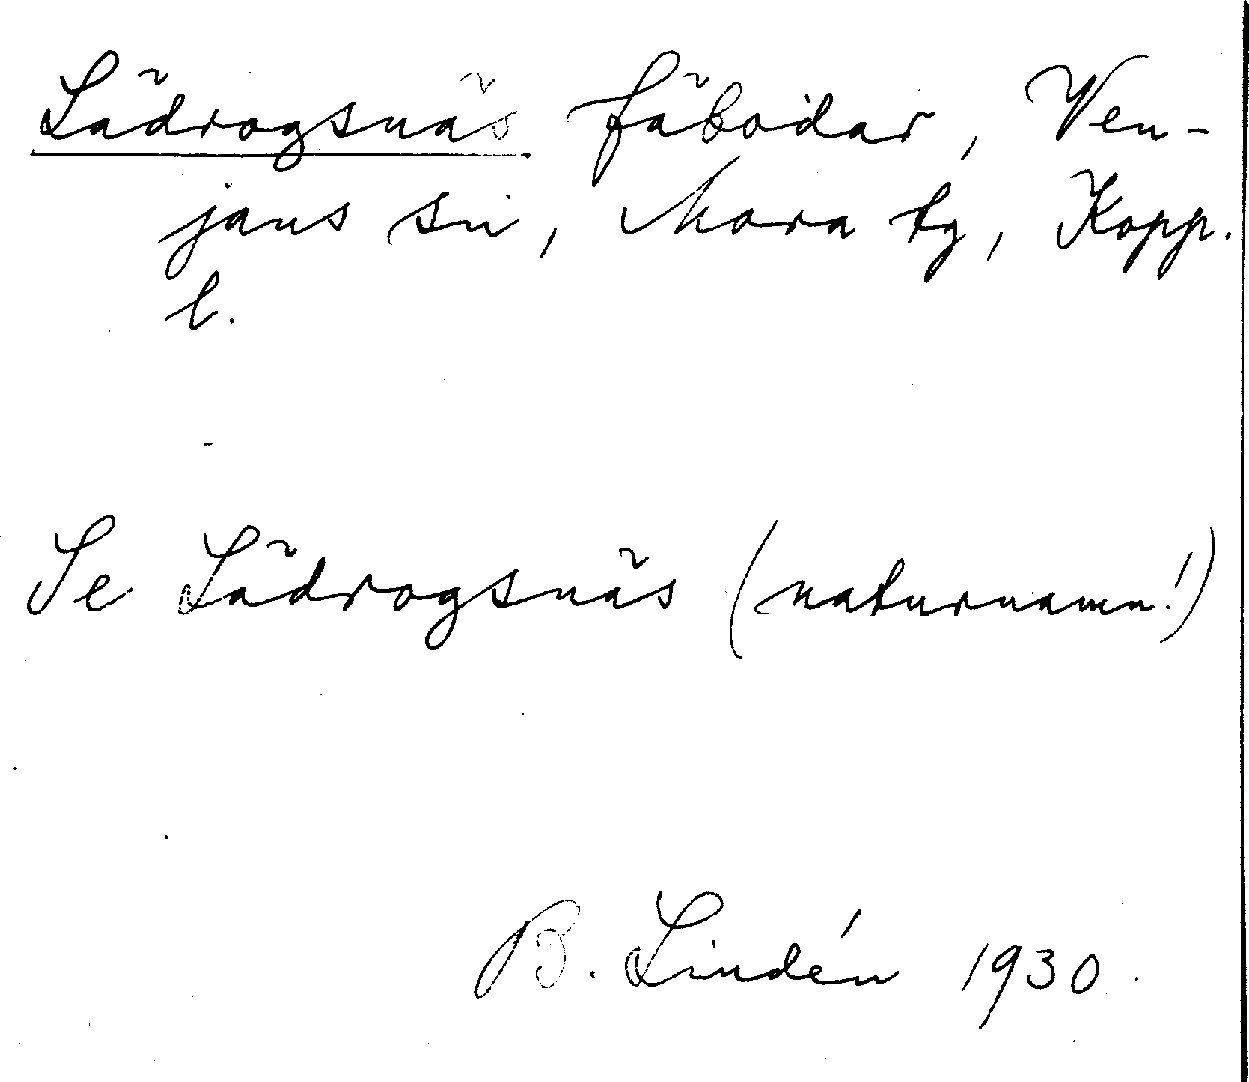 Lädrogsnäs fäbodar, Ven-
jans sn, Mora tg, Kopp.
l.
Se Lädrogsnäs (naturnamn!)
B. Lindén 1930.